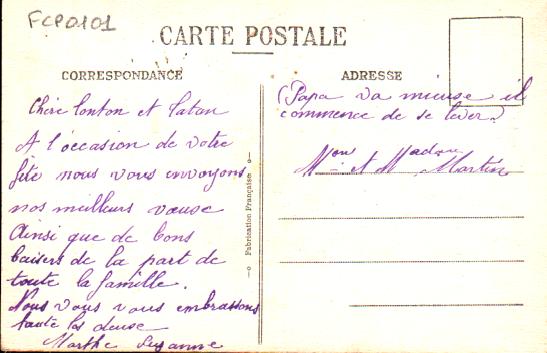 FCP0101
CARTE POSTALE
CORRESPONDANCE
Chère tonton et Tatan
A l'occasion de votre
fête nous vous envoyons
nos meilleurs vœuse
Ainsi que de bons
baisers de la part de
toute la famille.
Nous vous vous embrassons
toute les deuse
Marthe Suzanne
Fabrication Française
ADRESSE
(Papa va mieuse il
commence de se lever)
Mon et Madame Martin